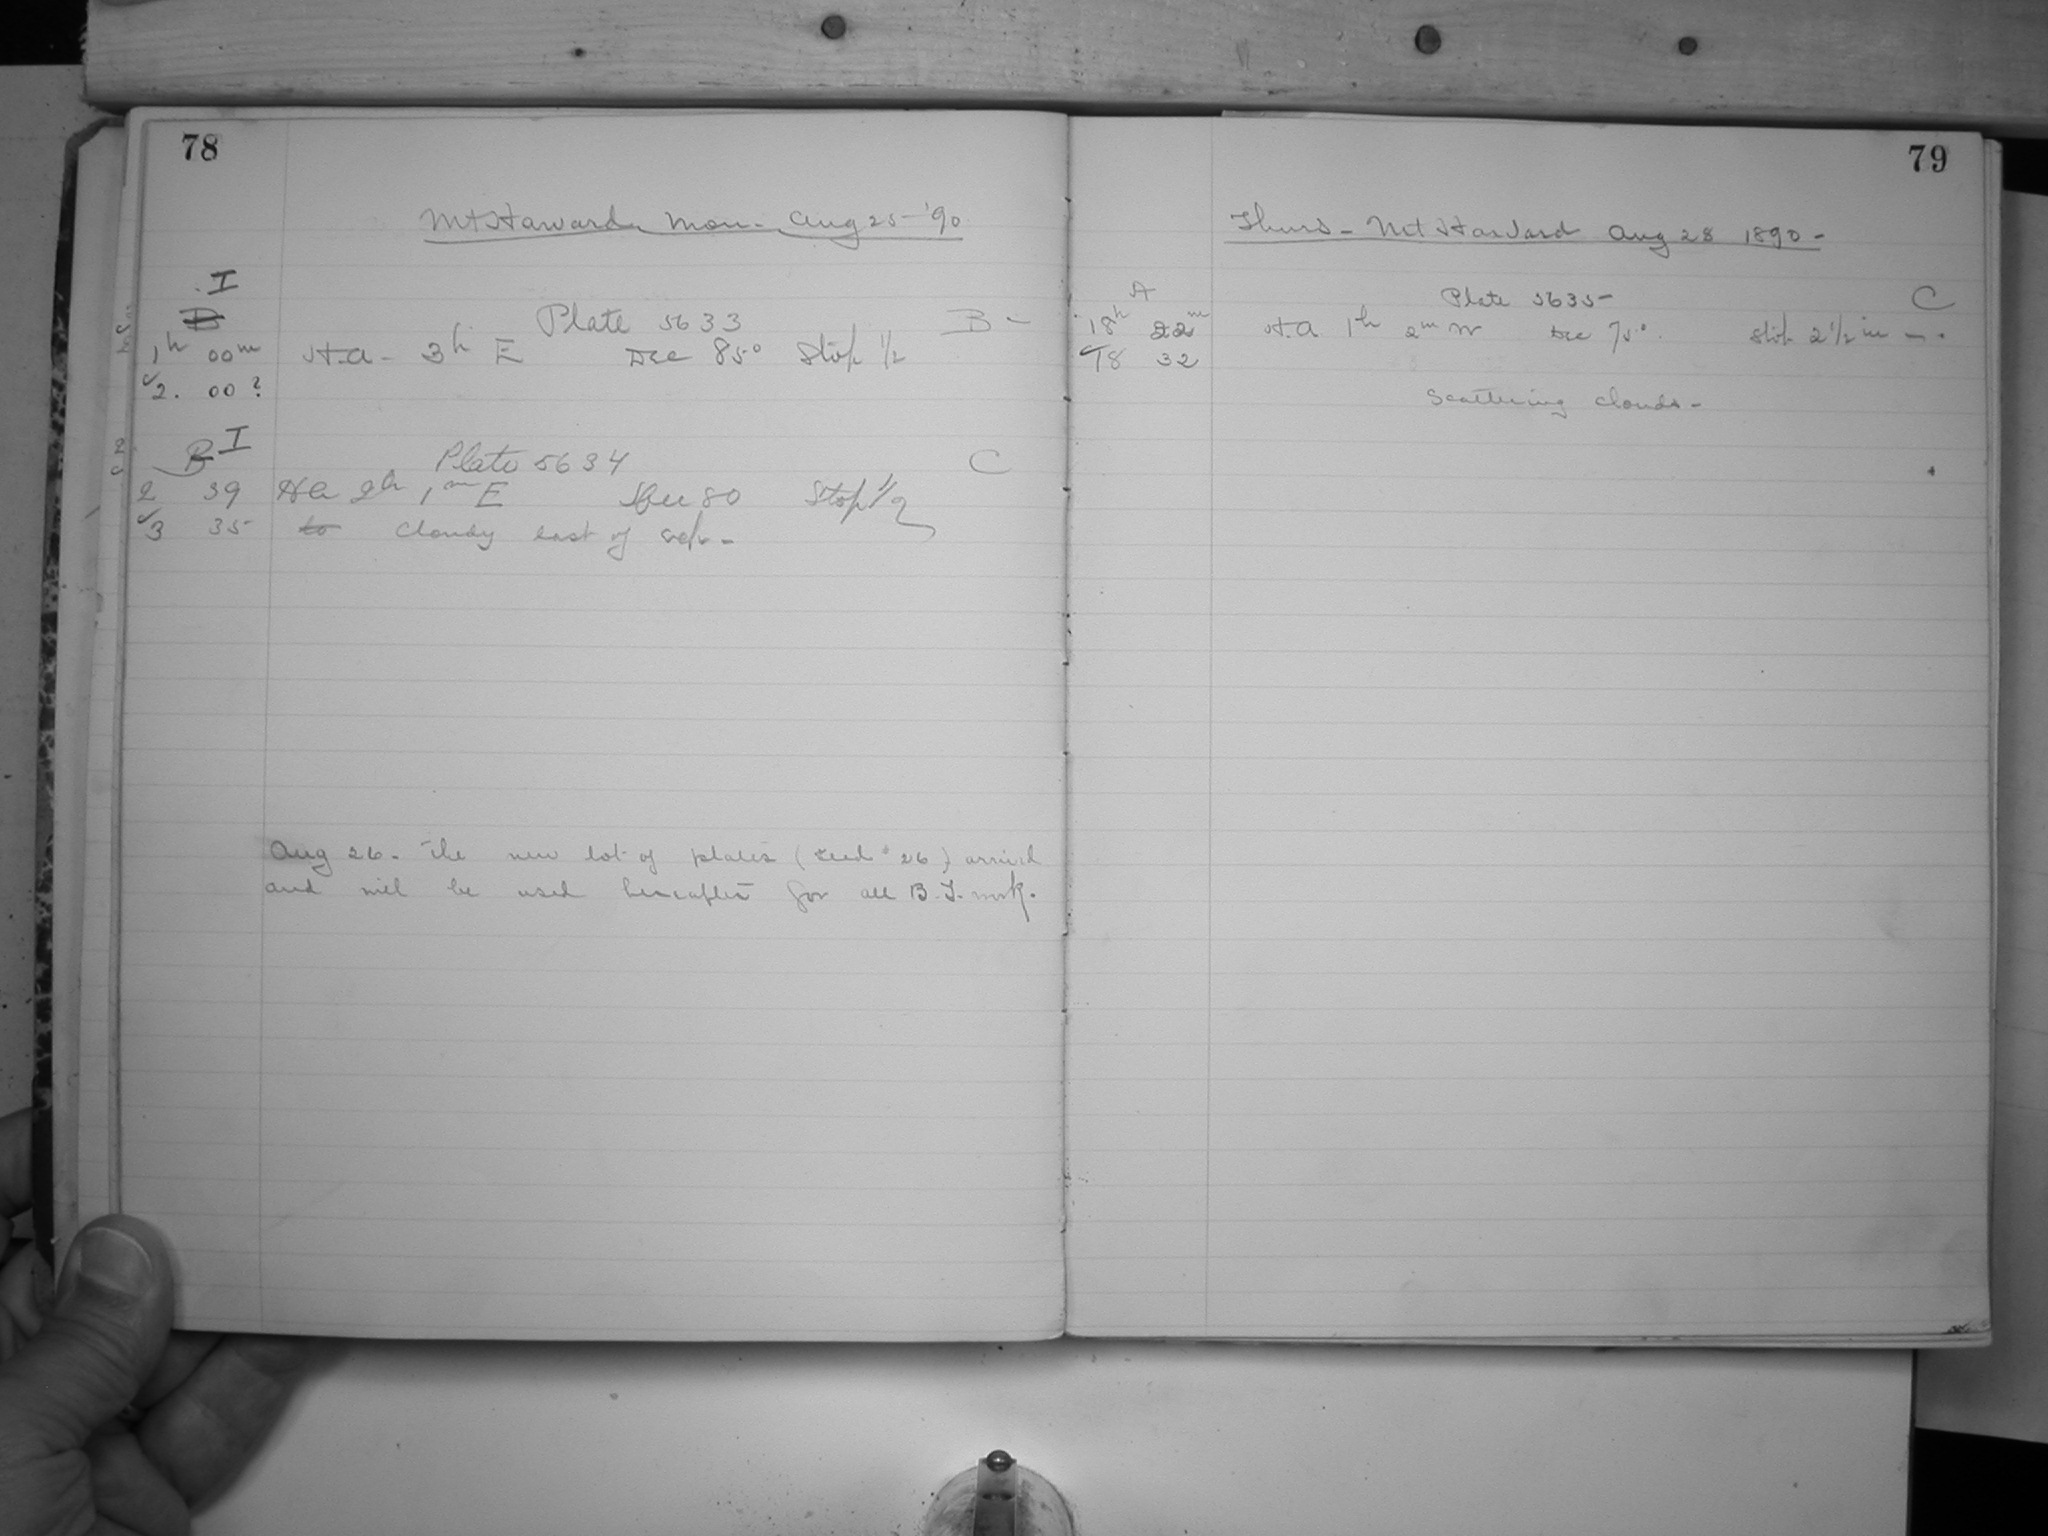 78
Mt Harvard Mon. Aug 25 - '90
I
B
Plate 5633 B -
1h 00m H.A - 3h E Dec 85° Stop 1/2
2. 00?
I
B Plate 5634 C
2 39 HA 2h 1m E Dec 80 Stop 1/2
3 35 to Cloudy last of exp -
Aug 26 - The new lot of plates (Seed # 26) arrived
and will be used hereafter for all B.T. work.
79
Thurs - Mt Harvard Aug 28 1890 -
A Plate 5635 - C
18h 22m H.A 1h 2m W Dec 75° Stop 2 1/2 in -
18 32
Scattering clouds -